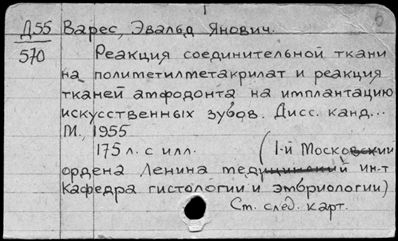 Д55 Варес, Эвальд Янович.
570 Реакция соединительной ткани
на полиметилметакрилат и реакция
тканей амфодонта на имплантацию
искусственных зубов. Дисс. канд...
М., 1955
175 л. с илл. (1-й Московский
ордена Ленина медицинский ин-т
Кафедра гистологии и эмбриологии)
См. след. карт.